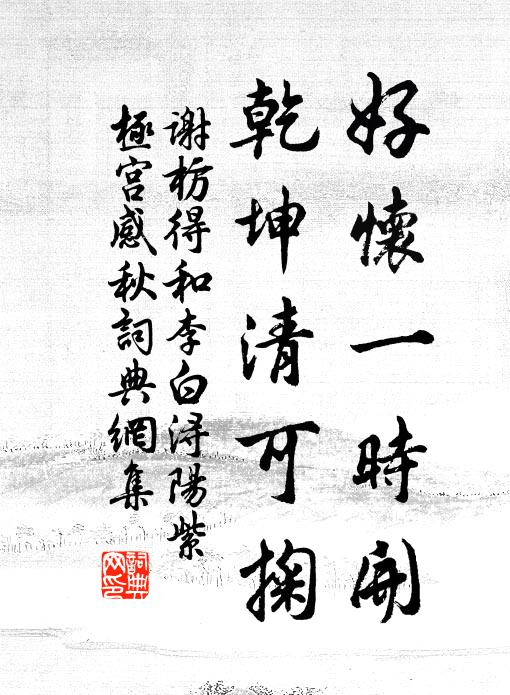 好懷一時開
乾坤清可掬
謝枋得和李白潯陽紫
極宮感秋詞典網集
詞典
网印